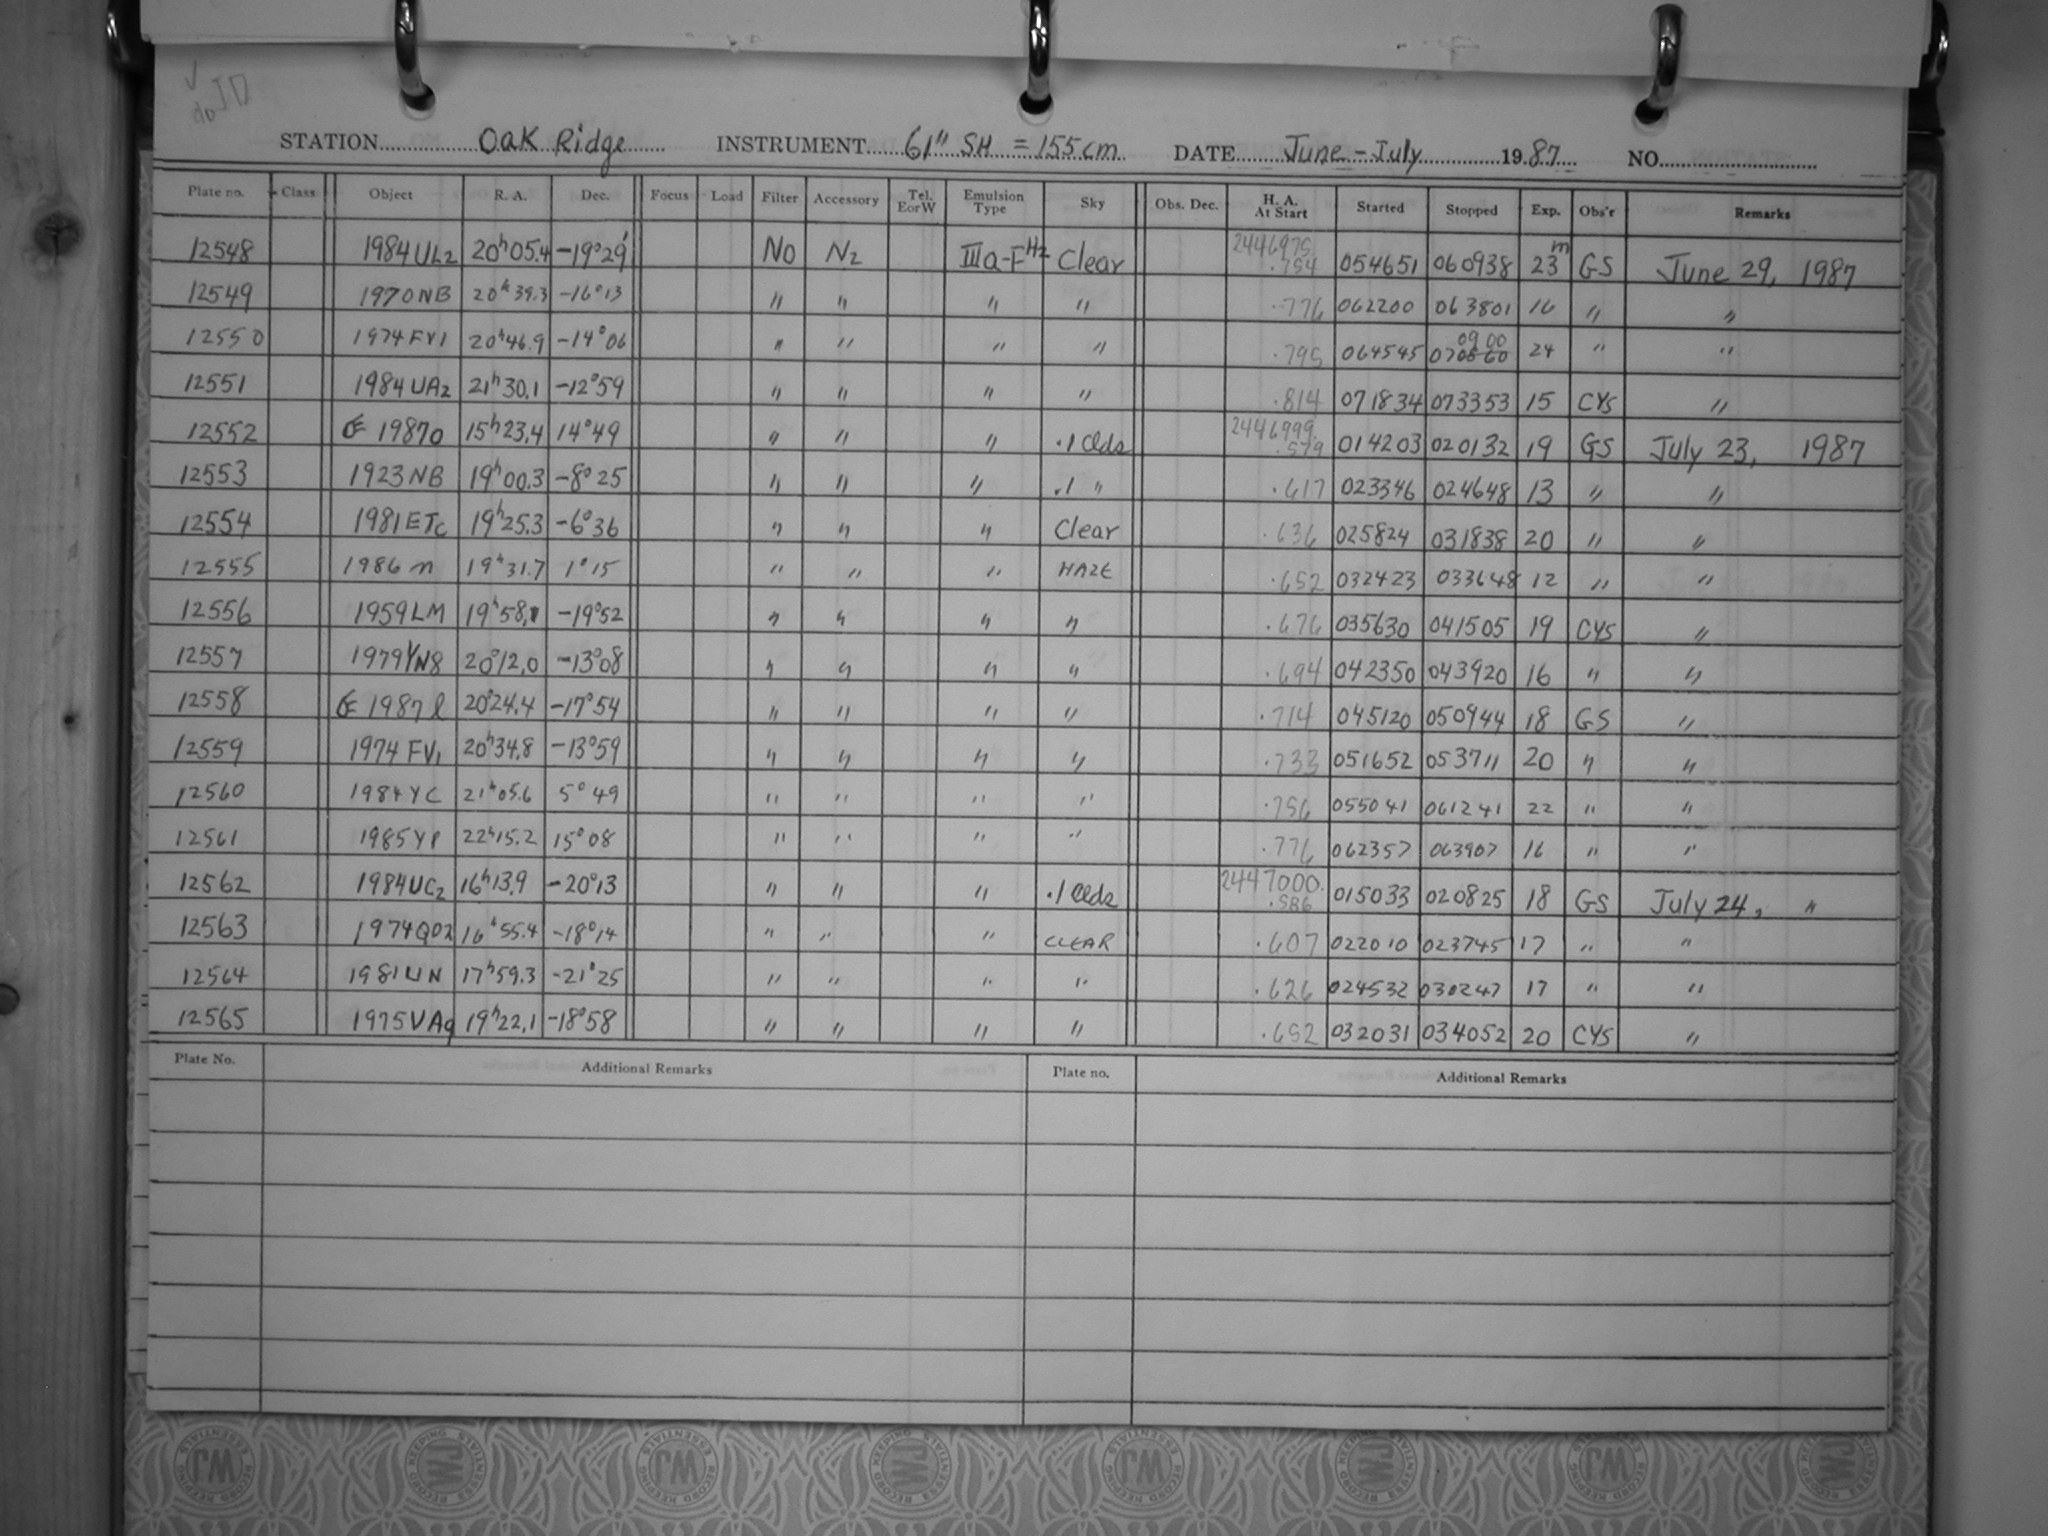 ✓
do JD
STATION Oak Ridge INSTRUMENT 61" SH = 155cm DATE June-July 1987 NO.
Plate no. Class Object R. A. Dec. Focus Load Filter Accessory Tel. EorW Emulsion Type Sky Obs. Dec. H. A. At Start Started Stopped Exp. Obs'r Remarks
12548 1984UL2 20h05.4 -19°29' NO N2 IIIa-F H2 Clear 2446975 .754 054651 060938 23m GS June 29, 1987
12549 1970NB 20h39.3 -16°13 " " " " .776 062200 063801 16 " "
12550 1974FV1 20h46.9 -14°06 " " " " .795 064545 0900 24 " "
12551 1984UA2 21h30.1 -12°59 " " " " .814 071834 073353 15 CYS "
12552 1987O 15h23.4 14°49 " " " .1 Clds 2446999. .579 014203 020132 19 GS July 23, 1987
12553 1923NB 19h00.3 -8°25 " " " .1 " .617 023346 024648 13 " "
12554 1981ETc 19h25.3 -6°36 " " " Clear .636 025824 031838 20 " "
12555 1986n 19h31.7 1°15 " " " HAZE .652 032423 033648 12 " "
12556 1959LM 19h58.1 -19°52 " " " " .676 035630 041505 19 CYS "
12557 1979YN8 20h12.0 -13°08 " " " " .694 042350 043920 16 " "
12558 1987l 20h24.4 -17°54 " " " " .714 045120 050944 18 GS "
12559 1974FV1 20h34.8 -13°59 " " " " .733 051652 053711 20 " "
12560 1984YC 21h05.6 5°49 " " " " .756 055041 061241 22 " "
12561 1985YP 22h15.2 15°08 " " " " .776 062357 063907 16 " "
12562 1984UC2 16h13.9 -20°13 " " " .1 Clds 2447000. .586 015033 020825 18 GS July 24, "
12563 1974QD2 16h55.4 -18°14 " " " CLEAR .607 022010 023745 17 " "
12564 1981UN 17h59.3 -21°25 " " " " .626 024532 030247 17 " "
12565 1975VA9 19h22.1 -18°58 " " " " .652 032031 034052 20 CYS "
Plate No. Additional Remarks Plate no. Additional Remarks
WJ ESSENTIALS RECORD KEEPING